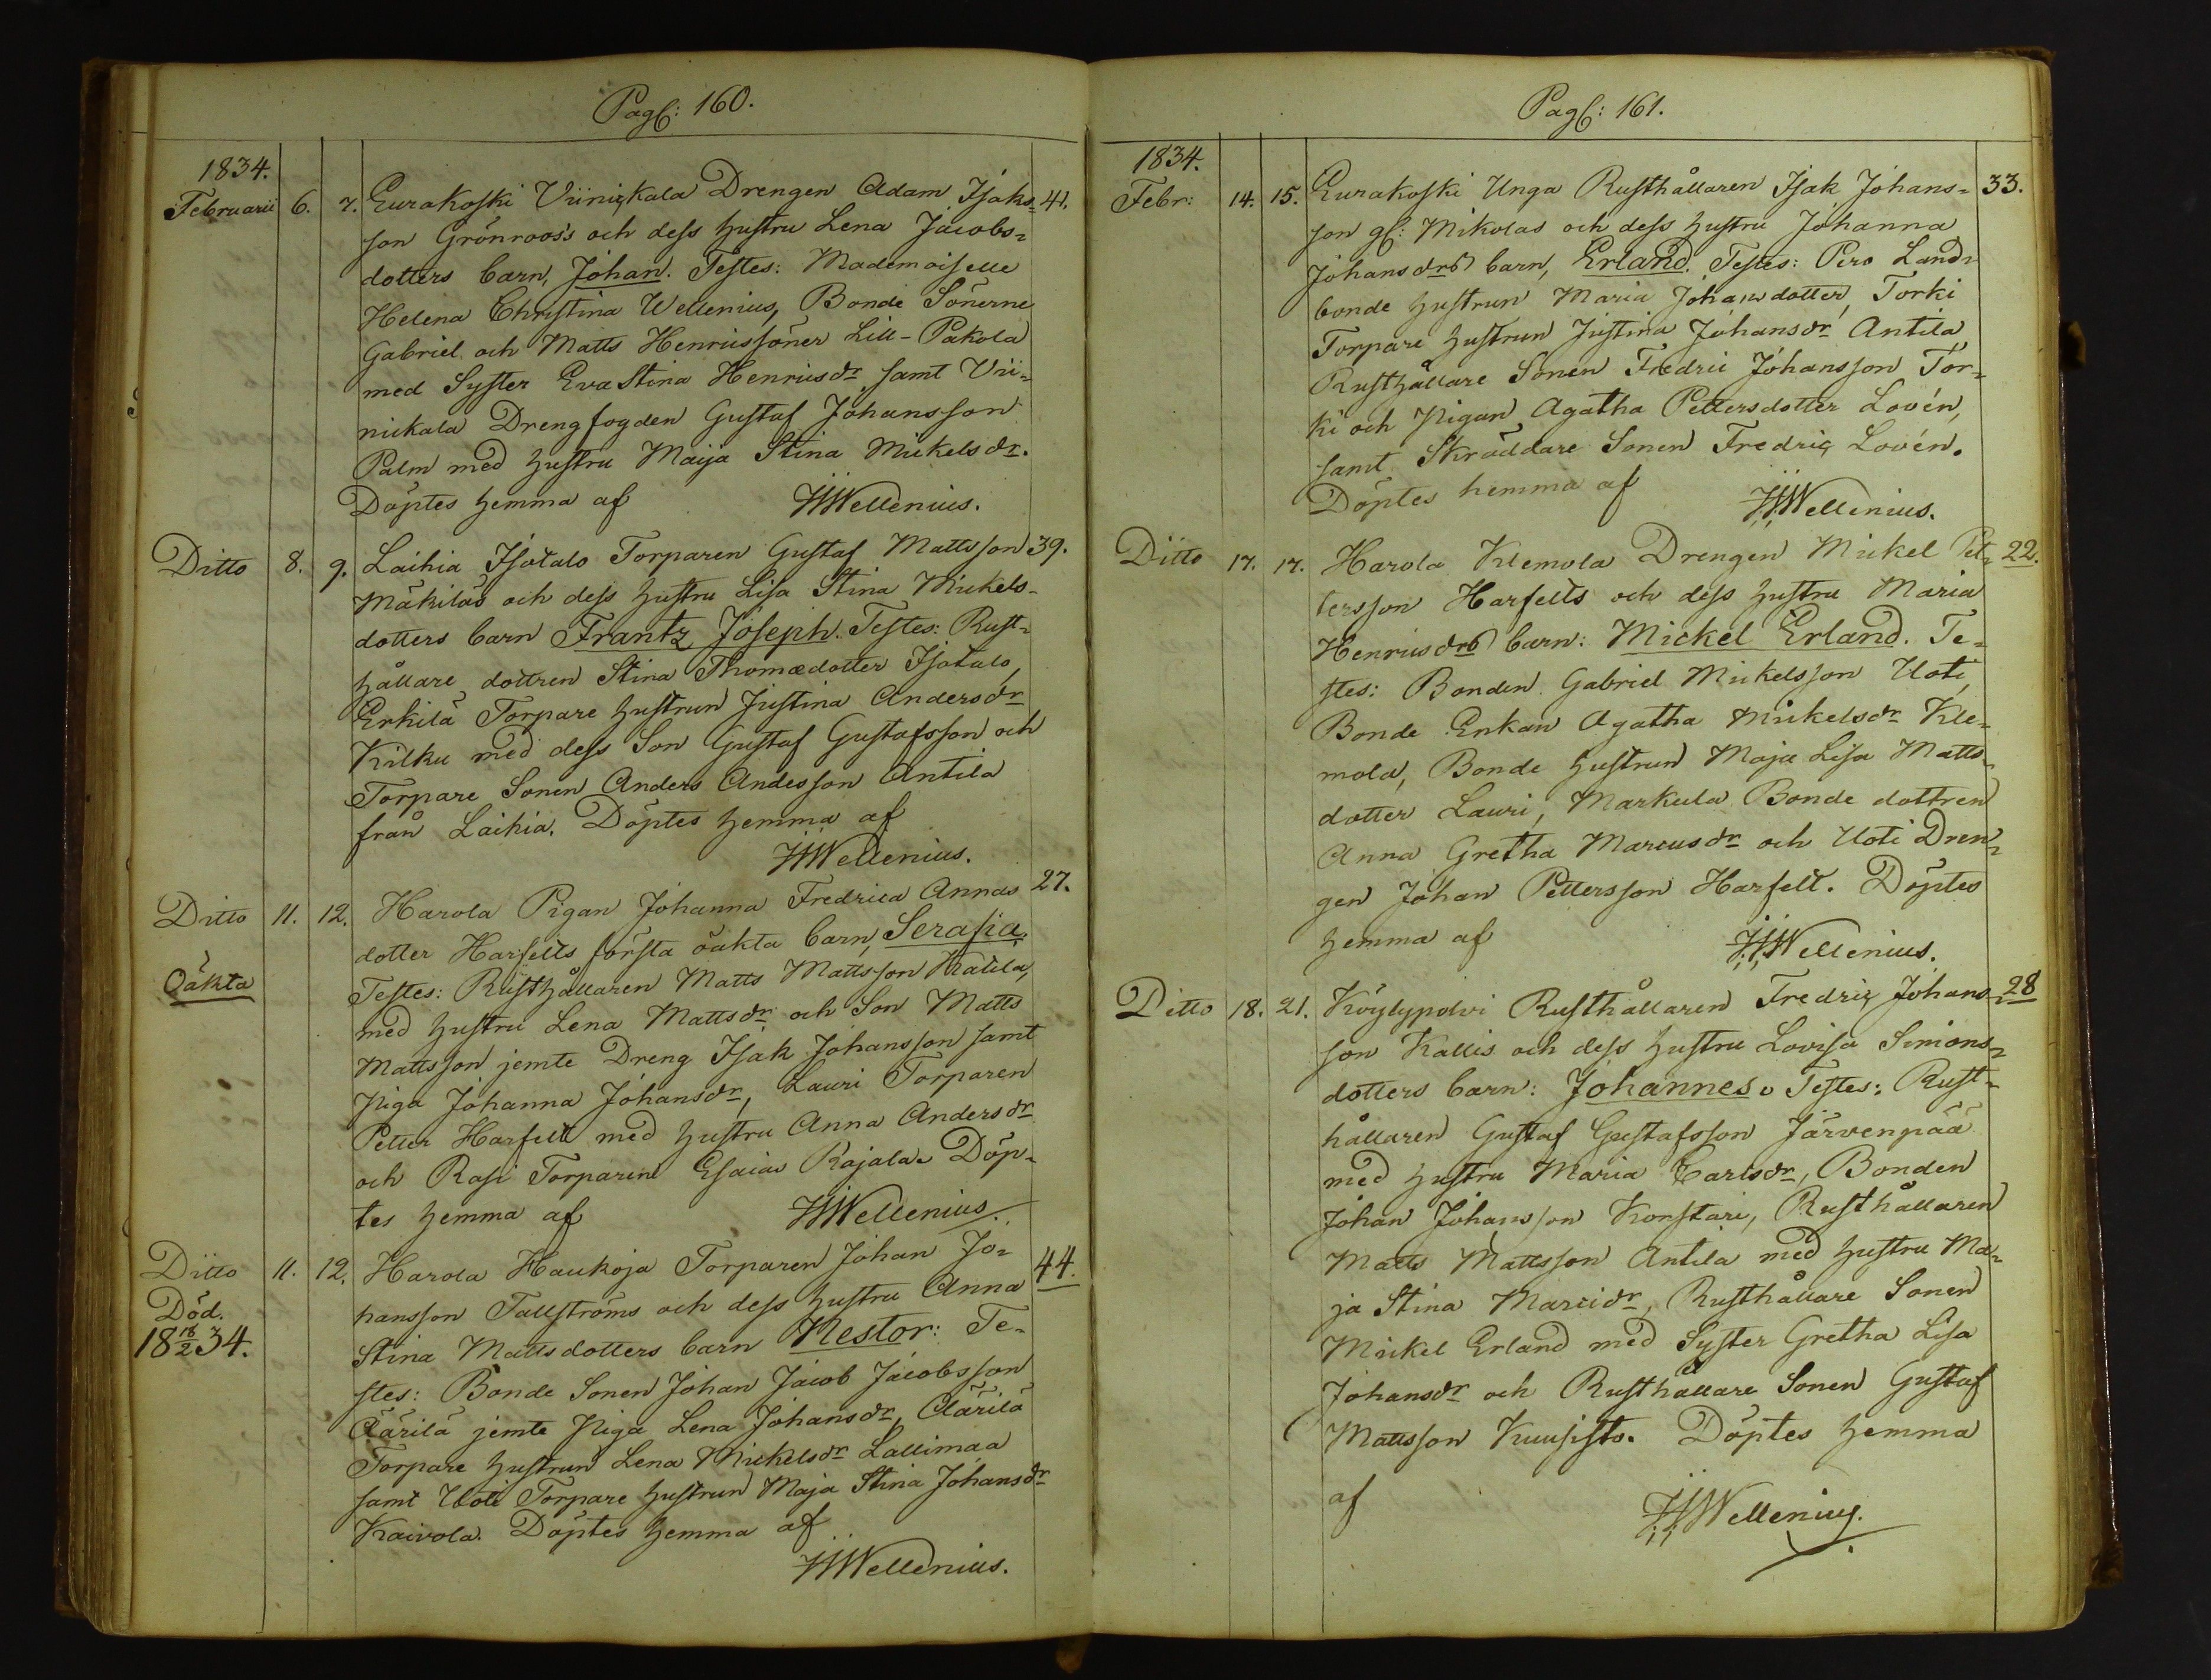 Pagſ: 160.
1834.
Februarii 6. 7. Eurakoſki Viinickala Drengen Adam Iſaks- 41.
ſon Grönroos's och deſs huſtru Lena Jacobs-
dotters barn, Johan. Teſtes: Mademoiſelle
Helena Chriſtina Wellenius, Bonde Sönerne
Gabriel och Matts Henricsſöner Lill-Pakola
med Syſter Eva Stina Henricsdr ſamt Vii-
nickala Drengfogden Guſtaf Johansſon
Palm med huſtru Maija Stina Mickelsdr.
Döptes hemma af HWellenius.
Ditto 8. 9. Laihia Iſotalo Torparen Guſtaf Mattsſon 39.
Mäkiläs och deſs huſtru Liſa Stina Mickels-
dotters barn Frantz Joſeph. Teſtes: Ruſt-
hållare dottren Stina Thomædotter Iſotalo,
Erkilä Torpare huſtrun Juſtina Andersdr
Kilku med deſs Son Guſtaf Guſtafsſon och
Torpare Sonen Anders Andesſon Antila
från Laihia. Döptes hemma af
HWellenius.
Ditto 11. 12. Harola Pigan Johanna Fredrica Annas 27.
dotter Harfelts förſta oäkta barn, Serafia.
Oäkta
Teſtes: Ruſthållaren Matts Mattsſon Katila,
med huſtru Lena Mattsdr och Son Matts
Mattsſon jemte Dreng Iſak Johansſon ſamt
Piga Johanna Johansdr, Lauri Torparen
Petter Harfelt med huſtru Anna Andersdr
och Raſi Torparen Eſaias Rajala. Döp-
tes hemma af HWellenius.
Ditto 11. 12. Harola Haukoja Torparen Johan Jo- 44.
Död.
18 18/2 34.
hansſon Tallſtröms och deſs huſtru Anna
Stina Mattsdotters barn Nestor: Te-
ſtes: Bonde Sonen Johan Jacob Jacobsſon
Äärilä jemte Piga Lena Johansdr, Äärilä
Torpare huſtrun Lena Mickelsdr Lallimaa
ſamt Uoti Torpare huſtrun Maja Stina Johansdr
Kaivola. Döptes hemma af
HWellenius.
Pagſ: 161.
1834.
Febr: 14. 15. Eurakoſki Unga Ruſthållaren Iſak Johans- 33.
ſon gſ: Mikolas och deſs huſtru Johanna
Johansdrs barn, Erland. Teſtes: Pero Land-
bonde huſtrun Maria Johansdotter, Torki
Torpare huſtrun Juſtina Johansdr Antila
Ruſthållare Sonen Fredric Johansſon Tor-
ki och Pigan Agatha Pettersdotter Lovén,
ſamt Skräddare Sonen Fredric Lovén.
Döptes hemma af
HWellenius.
Ditto 17. 17. Harola Klemola Drengen Mickel Pet- 22.
tersſon Harfelts och deſs huſtru Maria
Henricsdrs barn: Mickel Erland. Te-
ſtes: Bonden Gabriel Mickelsſon Uoti,
Bonde Enkan Agatha Mickelsdr Kle-
mola, Bonde huſtrun Maja Liſa Matts-
dotter Lauri, Markula Bonde dottren
Anna Gretha Marcusdr och Uoti Dren-
gen Johan Pettersſon Harfelt. Döptes
hemma af
HWellenius.
Ditto 18. 21. Köylypolvi Ruſthållaren Fredric Johans- 28
ſon Kallis och deſs huſtru Loviſa Simons-
dotters barn: Johannes. Teſtes: Ruſt-
hållaren Guſtaf Guſtafsſon Järvenpää
med huſtru Maria Carlsdr, Bonden
Johan Johansſon Korſtari, Ruſthållaren
Matts Mattsſon Antila med huſtru Ma-
ja Stina Marcidr, Ruſthållare Sonen
Mickel Erland med Syſter Gretha Liſa
Johansdr och Ruſthållare Sonen Guſtaf
Mattsſon Kuuſiſto. Döptes hemma
af HWellenius.